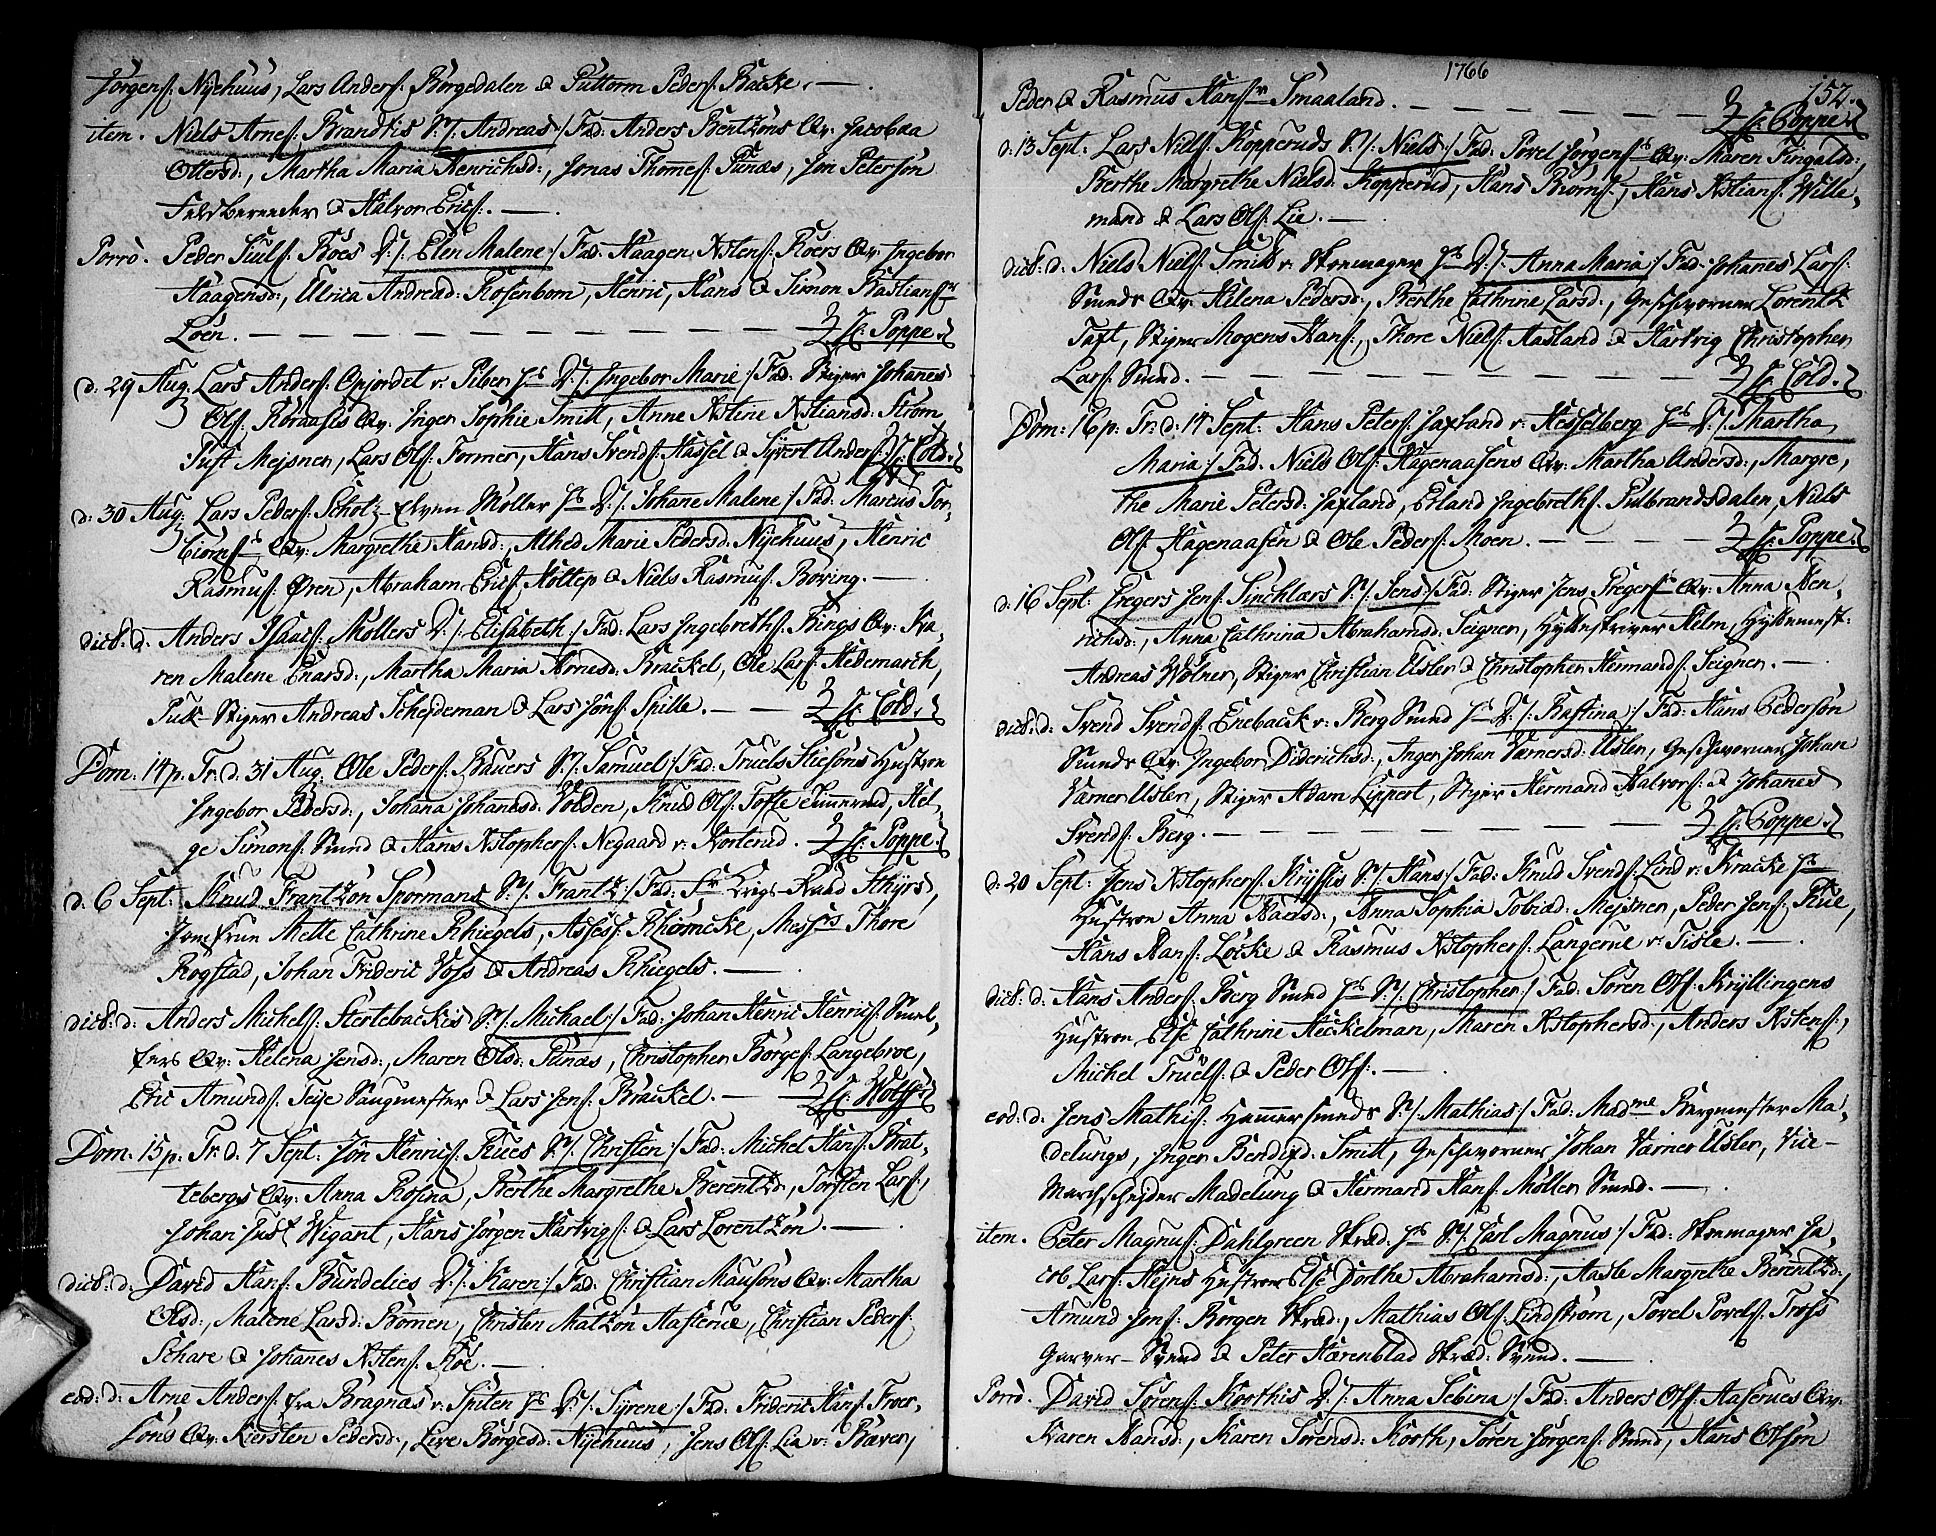 Jörgens: Nyehuus, Lars Anders: Börgedalen & Guttorm Peders: Backe. —
item. Niels Arnes: Brandtis S:/: Andreas:/ Fad: Anders Bentzöns Qv: Jacobaa
Ottersd:, Martha Maria Henrichsd:, Jonas Thomes: Funæs, Jon Petersön
Feldbereeder & Halvor Erics: —
Porrò. Peder Juuls: Roes D:/: Elen Malene:/ Fad: Haagen Xstens: Roers Qv: Ingebor
Haagensd:, Ulrica Andread: Rosenborn, Henric, Hans & Simon Bastians:
Loen. — — — — — H: Poppe.
d: 29 Aug. Lars Anders: Opjordet v: Piber Hs D:/: Ingebor Marie:/ Fad: Stiger Johanes
Ols: Roraasis Qv: Inger Sophie Smitt, Anne Xstene Xstiansd: Ström
Tuft Mejsner, Lars Ols: Former, Hans Svends: Hassel & Syvert Anders: H: Cold.
d: 30 Aug. Lars Peders: Scholtz Elven Möller Hs D:/: Johane Malene:/ Fad: Marcus Tor-
biörnss Qv: Margrethe Hansd:, Alhed Marie Pedersd: Nyehuus, Henric
Rasmus: Ören, Abraham Erics: Holtep & Niels Rasmus: Boring. —
dict: d: Anders Isaacs: Möllers D:/: Elisabeth:/ Fad: Lars Ingebreths: Rings Qv: Ka-
ren Malene Enarsd:, Martha Maria Arnesd: Brackel, Ole Lars: Hedemarch,
Puk-Stiger Andreas Schejdeman & Lars Jöns: Spille. — H: Cold.
Dom. 14 p. Tr. d. 31 Aug. Ole Peders: Bauers S:/: Samuel:/ Fad: Truels Stiesöns Hustrue
Ingebor Pedersd:, Johana Johansd: Volden, Knud Ols: Tofte Tömmermd, Hel-
ge Simons: Smed & Hans Xstophers: Negaard v: Korterud. H: Poppe.
d: 6 Sept: Knud Frantzön Spormans S:/: Frantz:/ Fad: Fr Krigs-Raad Sthyrs,
Jomfrue Mette Cathrine Rhiegels, Assess: Rhömcke, Messrs Thore
Rogstad, Johan Frideric Voss & Andreas Rhiegels. —
dict: d: Anders Michels: Stertebackis S:/: Michael:/ Fad: Johan Henric Henrics: Smel-
ters Qv: Helena Jensd:, Maren Olsd: Funæs, Christopher Börges: Langebroe,
Eric Amunds: Teye Saugmester & Lars Jens: Brackel. — H: Wolff.
Dom. 15 p. Tr. d. 7 Sept: Jön Henrics: Rues S:/: Christen:/ Fad: Michel Hans: Brat-
tebergs Qv: Anna Rosina, Berthe Margrethe Berentzd:, Torsten Lars:,
Johan Just Wigant, Hans Jörgen Hartvigs: & Lars Lorentzön. —
dict: d: David Hans: Bundelies D:/: Karen:/ Fad: Christian Mausöns Qv: Martha
Olsd:, Malene Larsd: Römen, Christen Matzön Aaserue, Christian Peders:
Schare & Johanes Xstens: Roe. —
eod: d: Arne Anders: fra Bragnæs v: Spiten Hs D:/: Syrene:/ Fad: Frideric Hans: Froer-
söns Qv: Kiersten Pedersd:, Live Börgesd: Nyehuus, Jens Ols: Lia v: Bæver,
1766
152.
Peder & Rasmus Hans: Smaaland. — — — H: Poppe
d: 13 Sept: Lars Niels: Kopperuds S:/: Niels:/ Fad: Povel Jörgenss Qv: Maren Fingalsd:
Berthe Margrethe Nielsd: Kopperud, Hans Biörns:, Hans Xstians: Wille-
mand & Lars Ols: Lie. —
dict: d: Niels Niels: Smith v: Skomager Hs D:/: Anna Maria:/ Fad: Johanes Lars:
Smeds Qv: Helena Pedersd:, Berthe Cathrine Larsd:, Geschworner Lorentz
Taft, Stiger Mogens Hans:, Thore Niels: Aasland & Hartvig Christopher
Lars: Smed. — — — H: Cold.
Dom: 16 p: Tr: d: 14 Sept: Hans Peters: Jaxland v: Hesselberg Hs D:/: Martha
Maria:/ Fad: Niels Ols: Hagenaasens Qv: Martha Andersd:, Margre-
the Marie Petersd: Jaxland, Erland Ingebreths: Gulbrandsdalen, Niels
Ols: Hagenaasen & Ole Peders: Moen. — — H: Poppe.
d: 16 Sept: Gregers Jens: Sinchlars S:/: Jens:/ Fad: Stiger Jens Gregerss Qv: Anna Hen-
richsd:, Anna Cathrina Abrahamsd: Seigner, Hyttestriver Helm, Hyttemest:
Andreas Wölner, Stiger Christian Usler & Christopher Hermands: Seigner. —
dict: d: Svend Svends: Eneback v: Berg Smed Hs D:/: Bastina:/ Fad: Hans Pedersön
Smeds Qv: Ingebor Diderichsd:, Inger Johan Varnersd: Usler, Geschworner Johan
Værner Usler, Stiger Adam Lippert, Stiger Hermand Halvors: & Johanes
Svends: Berg. — — — H: Poppe.
d: 20 Sept: Jens Xstophers: Kryssis S:/: Hans:/ Fad: Knud Svends: Lind v: Kracke Hs
Hustroe Anna Nielsd:, Anna Sophia Tobiæd: Mejsner, Peder Jens: Rue,
Hans Hans: Löcke & Rasmus Xstophers: Langerue v: Tisle. —
dict: d: Hans Anders: Berg Smed Hs S:/: Christopher:/ Fad: Sören Ols: Kryllingens
Hustroe Else Cathrine Heckelman, Maren Xstophersd:, Anders Xstens:,
Michel Truels: & Peder Ols: —
eod: d: Jens Mathis: Hammersmeds S:/: Mathias:/ Fad: Madme Bergmester Ma-
delungs, Inger Bendixd: Smitt, Geschworner Johan Værner Usler, Vice-
Marchschejder Madelung & Hermand Hans: Möller Smed. —
item. Peter Magnus: Dahlgreen Skræd: Hs S:/: Carl Magnus:/ Fad: Skomager Ja-
cob Lars: Hejns Hustroe Else Dorthe Abrahamsd:, Aasle Margrethe Berentzd:,
Amund Jens: Borgen Skræd:, Mathias Ols: Lindström, Povel Povels: Tross
Garver-Svend & Peter Hærenblad Skræd: Svend. —
Porrò. David Sörens: Korthis D:/: Anna Sebina:/ Fad: Anders Ols: Aaserues Qv:
Karen Hansd:, Karen Sörensd: Korth, Sören Jörgens: Smed, Hans Olsön